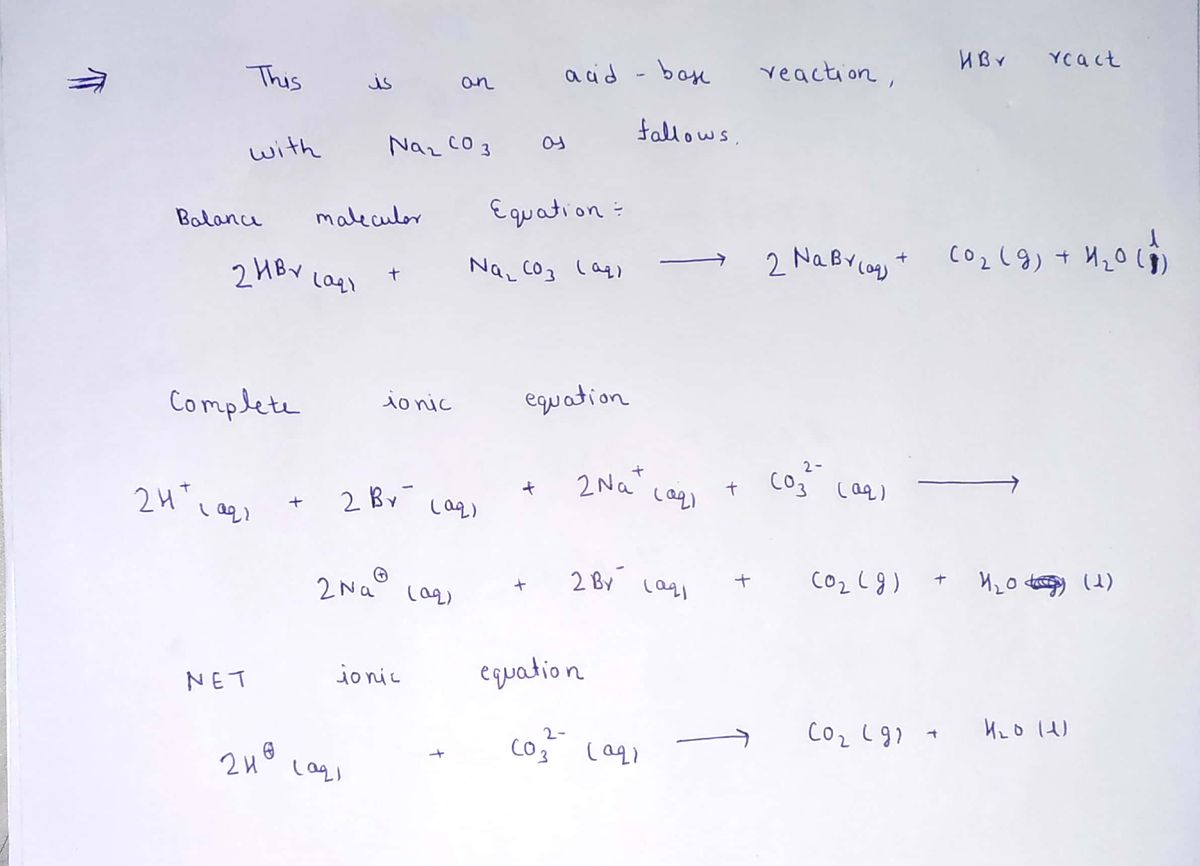 ⇒ This is an acid - base reaction, HBr react
with Na₂CO₃ as fallows.
Balance malecular Equation ÷
2HBr (aq) + Na₂CO₃ (aq) ⟶ 2NaBr (aq) + CO₂ (g) + H₂O (l)
Complete ionic equation
2H⁺ (aq) + 2Br⁻ (aq) + 2Na⁺ (aq) + CO₃²⁻ (aq) ⟶
2Na⊕ (aq) + 2Br⁻ (aq) + CO₂ (g) + H₂O (l)
NET ionic equation
2H⊕ (aq) + CO₃²⁻ (aq) ⟶ CO₂ (g) + H₂O (l)